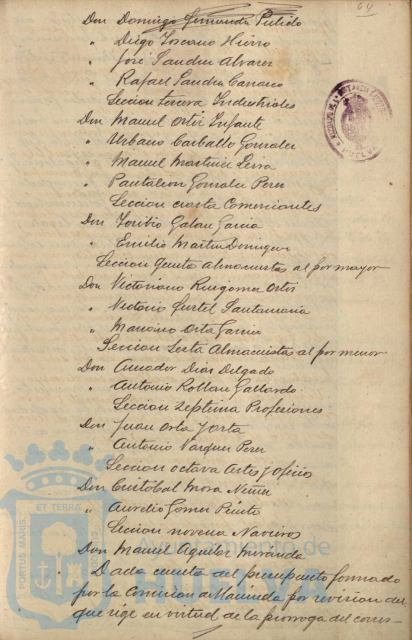 64
Don Domingo Fernandez Pulido
" Diego Toscano Hierro
" José Sanchez Alvarez
" Rafael Sanchez Carrasco
Seccion tercera Industriales
Don Manuel Ortiz Infante
" Urbano Carballo Gonzalez
" Manuel Martinez Leiva
" Pantaleon Gonzalez Perez
Seccion cuarta Comerciantes
Don Toribio Galan Garcia
" Emilio Martin Dominguez
Seccion Quinta almacenistas al por mayor
Don Victoriano Ruigomez Ortiz
" Victorio Santamaria
" Orta Garcia
Seccion Sexta Almacenistas al por menor
Don Amador Dias Delgado
" Antonio Roldan Gallardo
Seccion Septima Profesiones
Don Juan Orta y Orta
" Antonio Vazquez Perez
Seccion octava Artes y Oficios
Don Cristobal Mora Nuñez
" Aurelio Gomez Pinto
Seccion novena Navieros
Don Manuel Aguilar Miranda
Dada cuenta del presupuesto formado
por la Comision de Hacienda por revision del
que rige en virtud de la prorroga del corres-
PORTUS MARIS ET TERRÆ
Ayuntamiento de